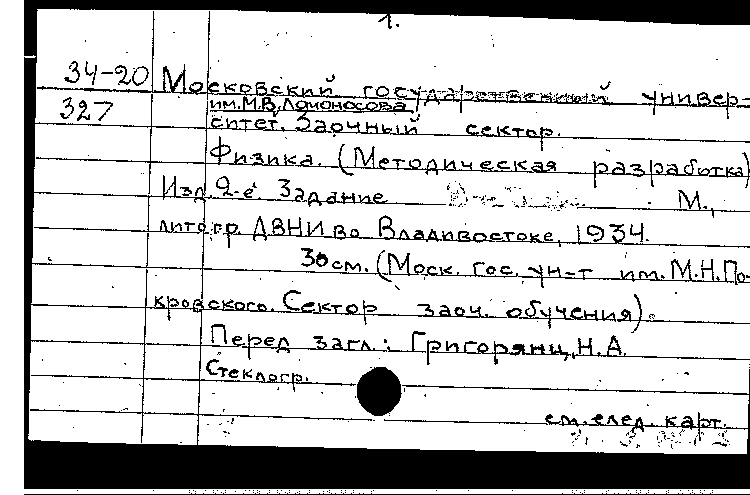 1.
34-20 Московский государственный универ-
327 им. М.В. Ломоносова
ситет. Заочный сектор.
Физика. (Методическая разработка)
Изд. 2-е. Задание М.,
литогр. ДВНИ во Владивостоке, 1934.
30см. (Моск. гос. ун-т им. М.Н. По-
кровского. Сектор заоч. обучения).
Перед загл.: Григорянц, Н.А.
Стеклогр.
см. след. карт.